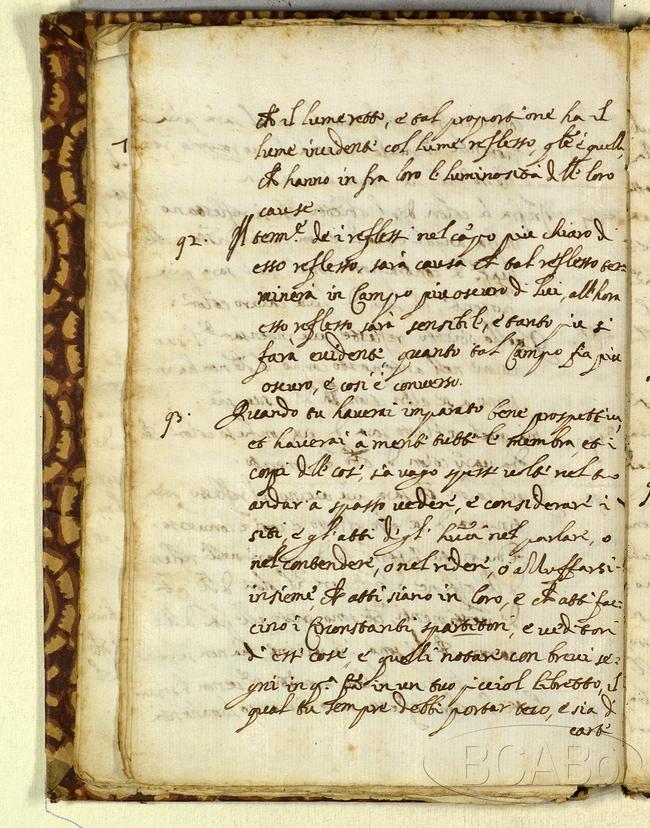 che il lume retto, e tal proportione ha il
lume incidente col lume reflesso, qle è quella,
che hanno in fra loro le luminosità dlle loro
cause.
92. Il term.e de i reflessi nel cāpo piu chiaro di
esso reflesso, sarà causa che tal reflesso ter=
minerà in Campo piu oscuro di lui, all'hora
esso reflesso sarà sensibile, e tanto piu si
farà evidente quanto tal Campo fia piu
oscuro, e così è converso.
93. Quando tu haverai imparato bene prospettiva,
et haverai à mente tutte le membra, et i
corpi dlle cose, sia vago spesse volte nel tuo
andar à spasso vedere, e considerare i
siti, e gl'atti de gl' huōi nel parlare, o
nel contendere, o nel ridere, o azzuffarsi
insieme, che atti siano in loro, e che atti fac=
cino i Circonstanti spartitori, e veditori
di esse cose, e quelli notare con brevi se=
gni in q.a in un tuo picciol libretto, il
qual tu sempre debbi portar teco, e sia di
carte
BCABo